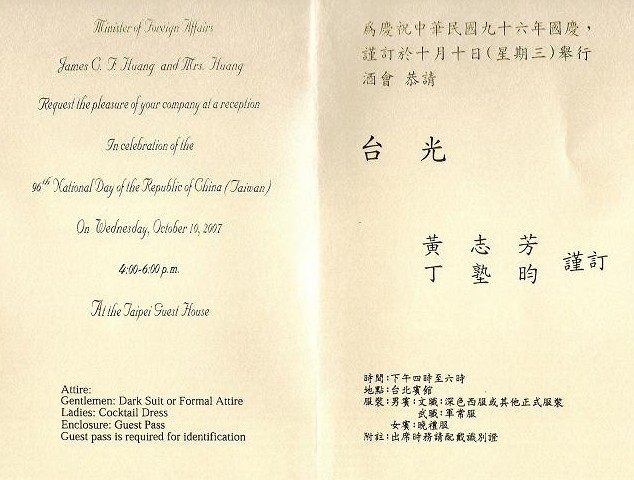 Minister of Foreign Affairs
James C. F. Huang and Mrs. Huang
Request the pleasure of your company at a reception
In celebration of the
96th National Day of the Republic of China (Taiwan)
On Wednesday, October 10, 2007
4:00-6:00 p.m.
At the Taipei Guest House
Attire:
Gentlemen: Dark Suit or Formal Attire
Ladies: Cocktail Dress
Enclosure: Guest Pass
Guest pass is required for identification
為慶祝中華民國九十六年國慶，
謹訂於十月十日(星期三)舉行
酒會 恭請
台 光
黃 志 芳
丁 塾 昀 謹訂
時間：下午四時至六時
地點：台北賓館
服裝：男賓：文職：深色西服或其他正式服裝
武職：軍常服
女賓：晚禮服
附註：出席時務請配戴識別證